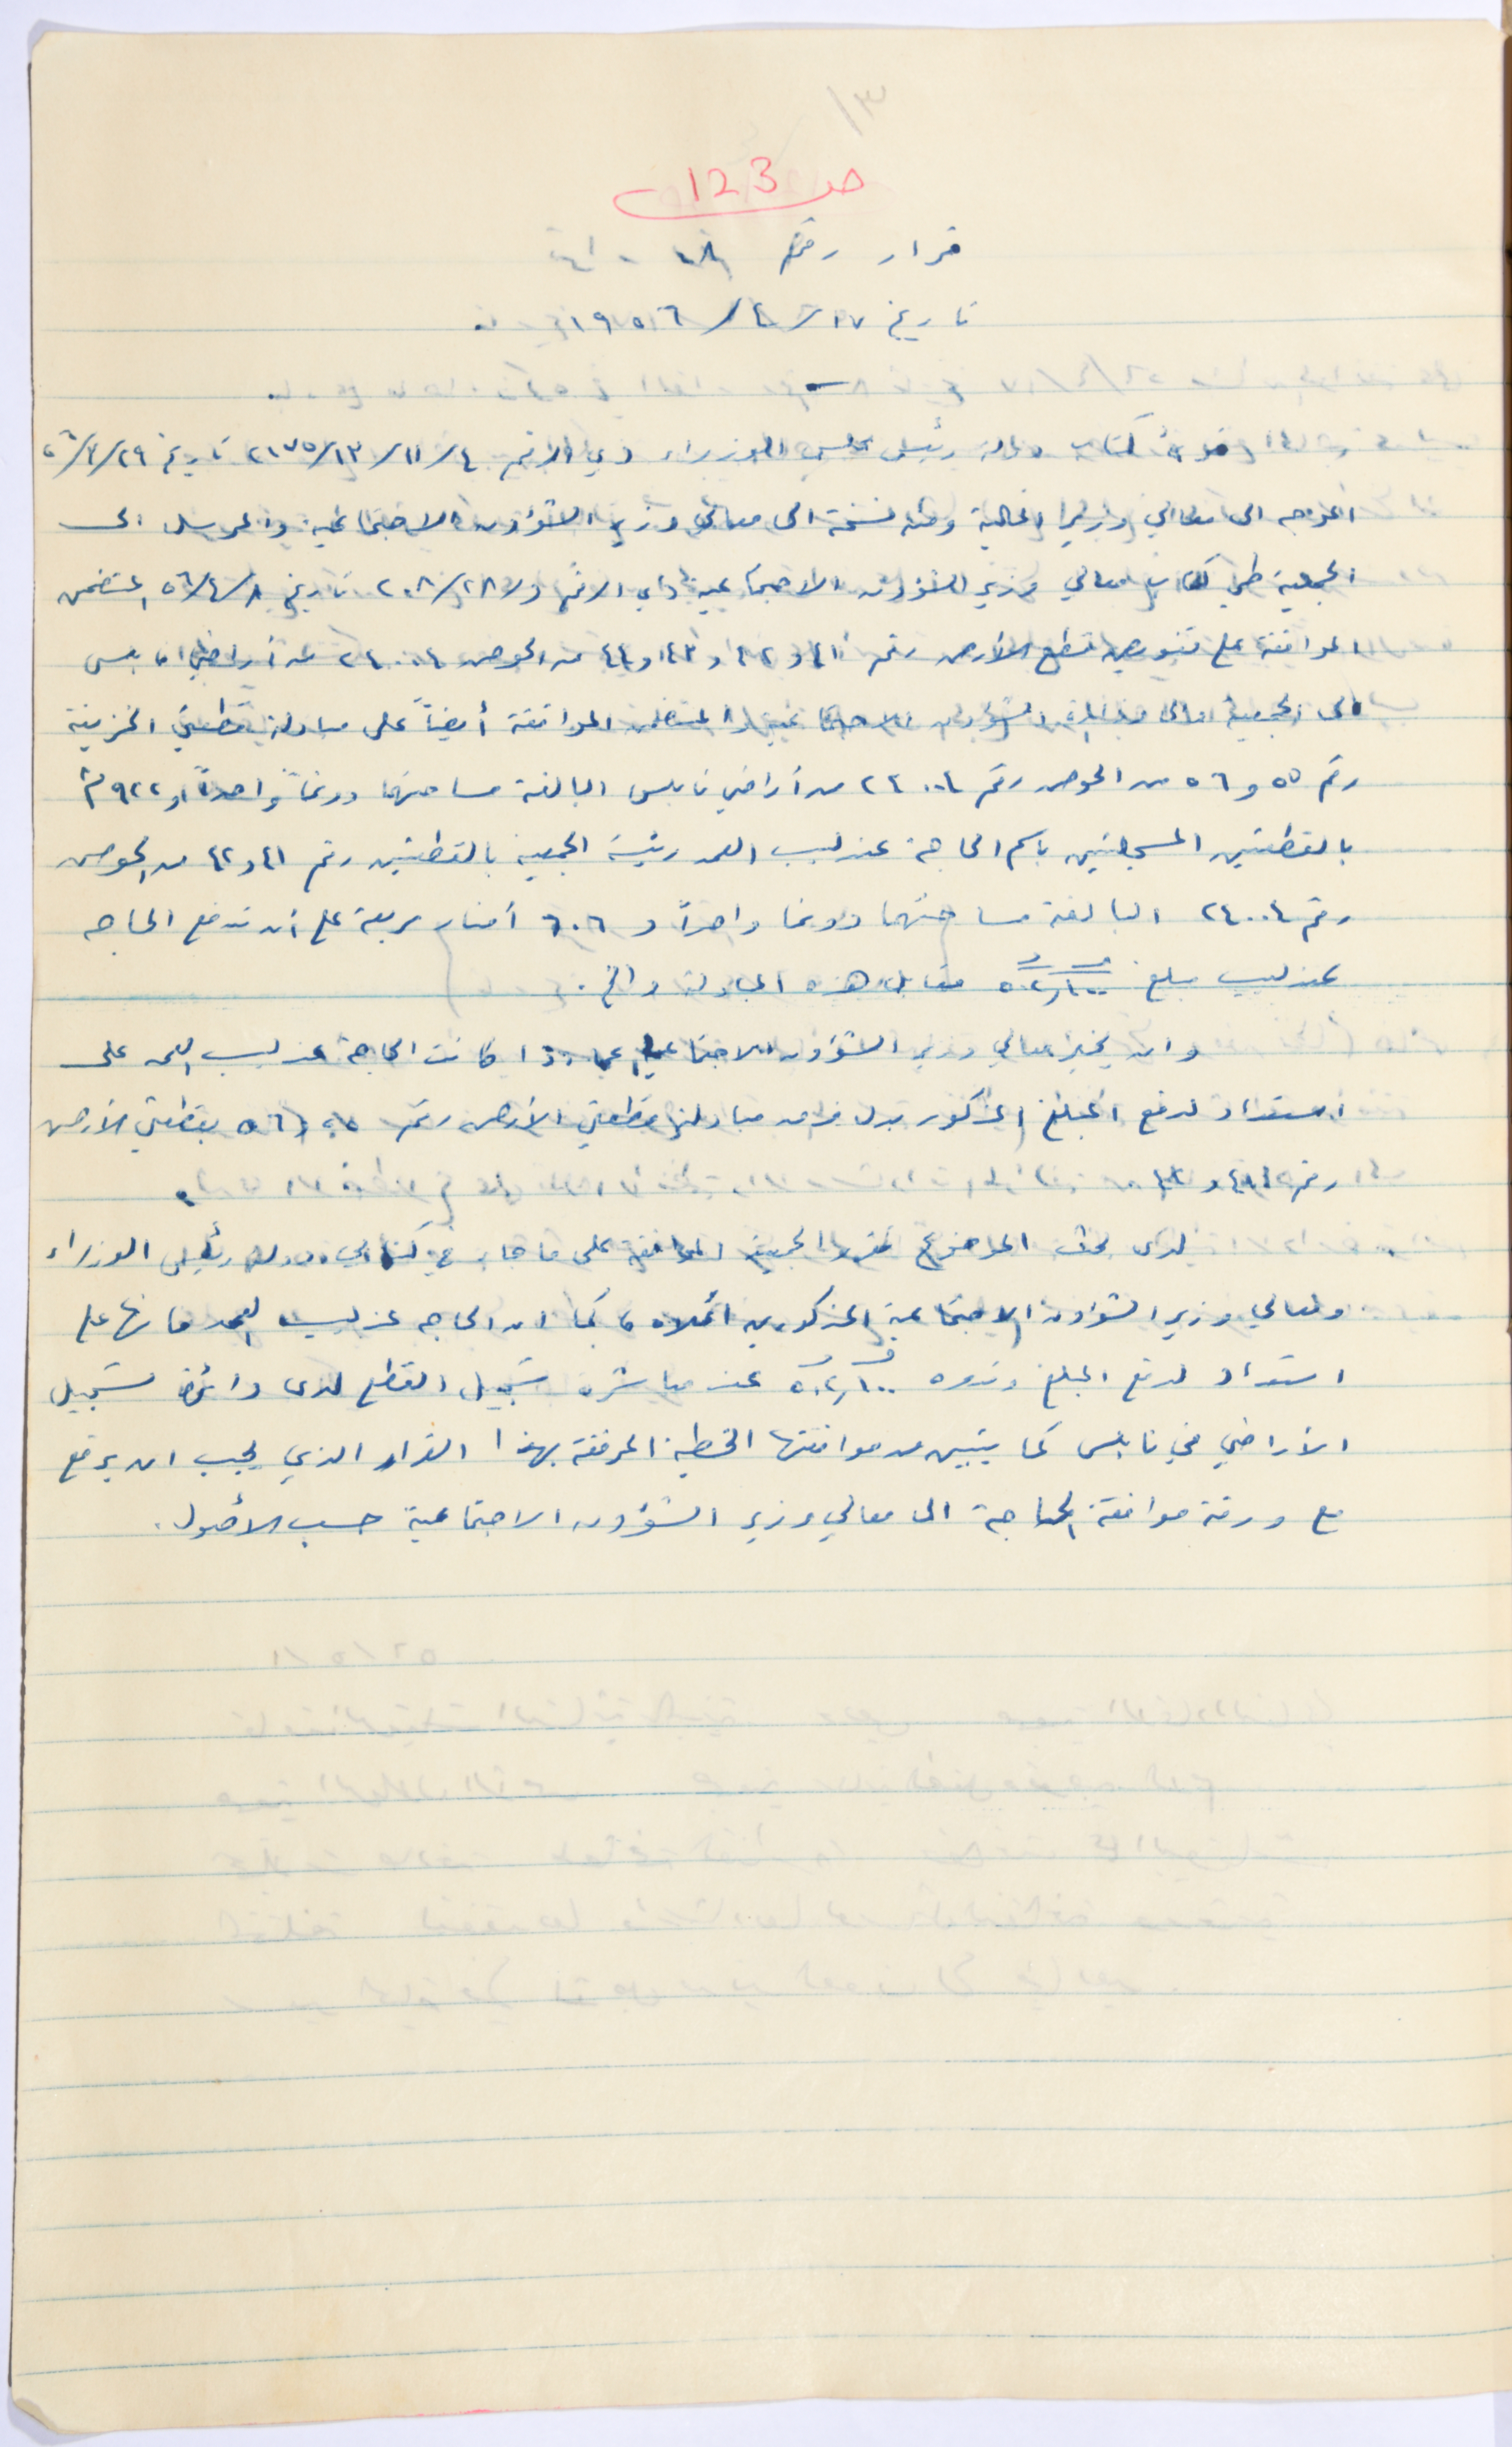 ١٣/
صـ 123
قرار رقم ١٨
تاريخ ١٧/٤/١٩٥٦
قرئ كتاب دولة رئيس مجلس الوزراء ذي الرقم ٤/١١/١٣/٢١٧٥ تاريخ ٢٩/٣/٥٦
الموجه الى معالي وزير المالية ومنه نسخة الى معالي وزير الشؤون الاجتماعية والمرسل الى
الجمعية طي كتاب معالي وزير الشؤون الاجتماعية ذي الرقم ٢٠٨/٢٨ تاريخ ٨/٤/٥٦ المتضمن
الموافقة على تفويض قطع الأرض رقم ٤١ و٤٢ و٤٣ و٤٤ من الحوض ٢٤٠٠٤ من أراضي نابلس
الى الجمعية الشؤون الاجتماعية والمتضمن الموافقة أيضاً على مبادلة قطعتي الخزينة
رقم ٥٥ و ٥٦ من الحوض رقم ٢٤٠٠٤ من أراضي نابلس البالغة مساحتهما دونماً واحداً و ٩٢٢ م٢
بالقطعتين المسجلتين باسم الحاجة عندليب العمد رئيسة الجمعية بالقطعتين رقم ٤١ و ٤٢ من الحوض
رقم ٢٤٠٠٤ البالغة مساحتهما دونما واحداً و ٦٠٦ أمتار مربعة على أن تدفع الحاجه
عندليب مبلغ ٥٠٢,١٠٠ مقابل هذه المبادلة والخ.
وان يخبر معالي وزير الشؤون الاجتماعية عما اذا كانت الحاجة عندليب العمد على
استعداد لدفع المبلغ المذكور بدل فرق مبادلة قطعتي الأرض رقم ٥٥ و ٥٦ بقطعتي الأرض
رقم ٤١ و ٤٢
لدى بحث الموضوع تقرر الجمعية الموافقة على ما جاء في كتابي دولة رئيس الوزراء
ومعالي وزير الشؤون الاجتماعية المذكورين أعلاه كما ان الحاجه عندليب العمد فانها على
استعداد لدفع المبلغ وقدره ٥٠٢,١٠٠ عند مباشرة تسجيل القطع لدى دائرة تسجيل
الأراضي في نابلس كما يتبين من موافقتها الخطية المرفقة بهذا القرار الذي يجب ان يرفع
مع ورقة موافقة الحاجة الى معالي وزير الشؤون الاجتماعية حسب الأصول.